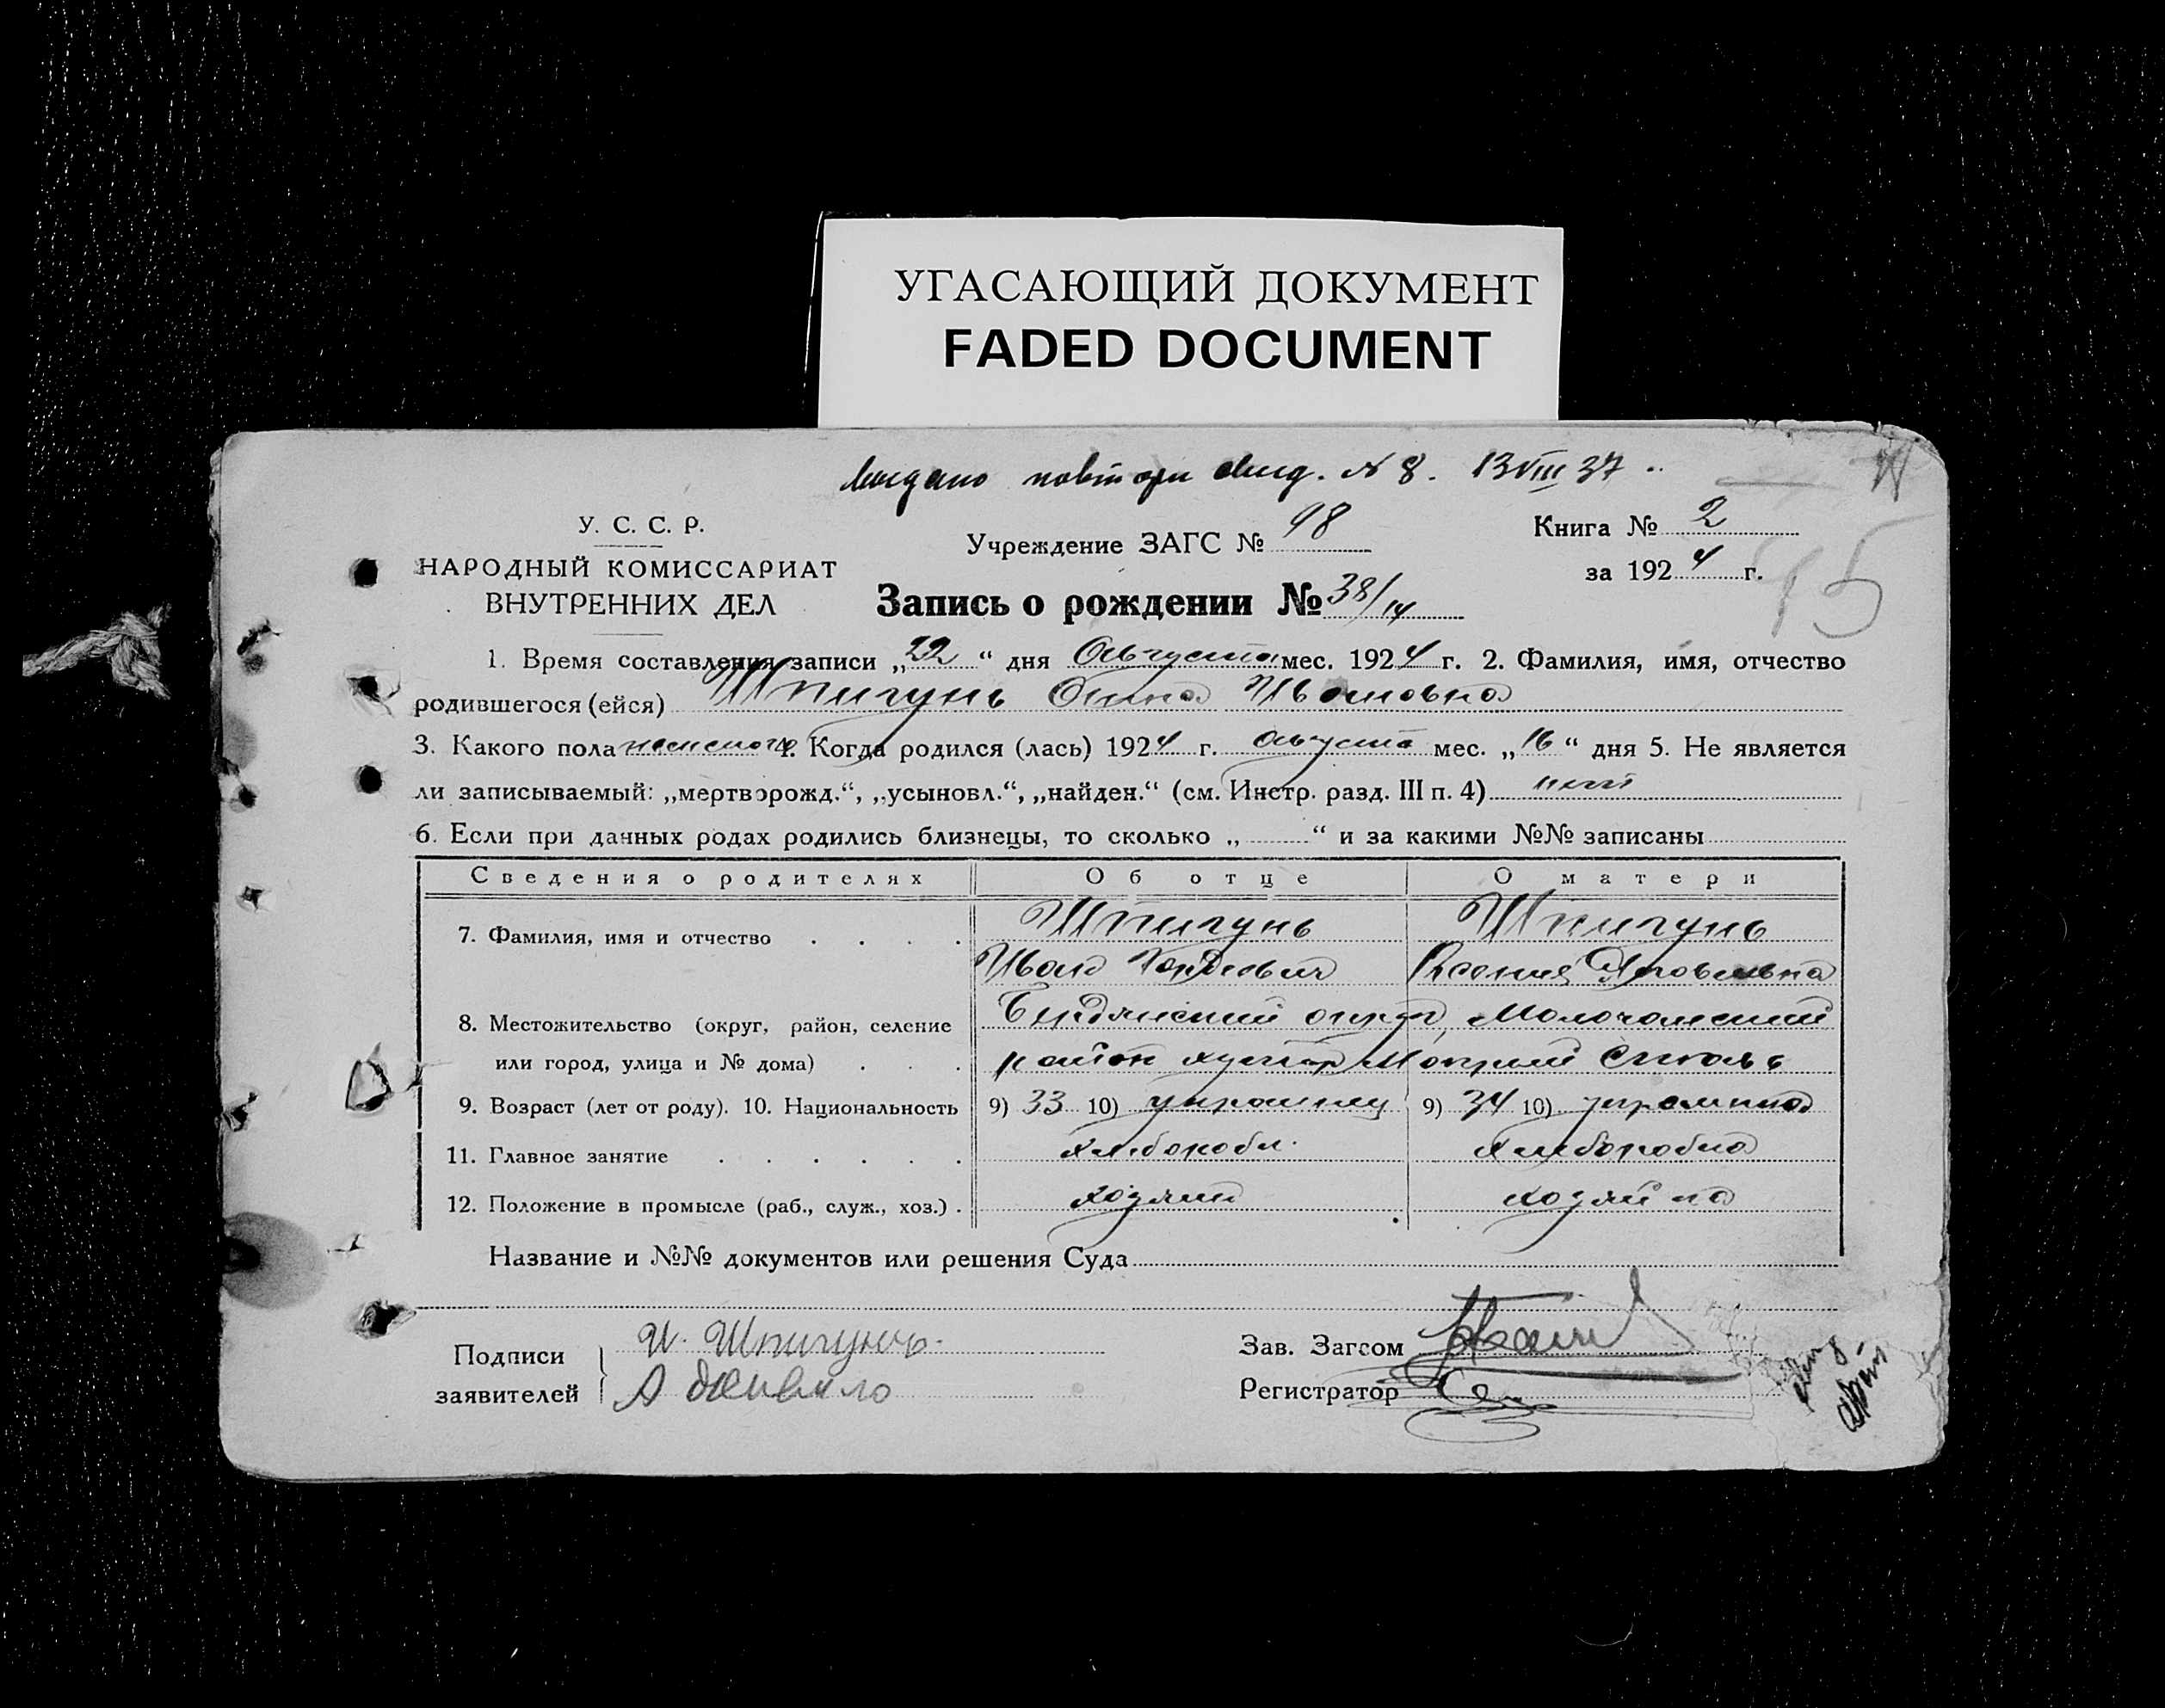 УГАСАЮЩИЙ ДОКУМЕНТ
FADED DOCUMENT
повтори свид. № 8. 13 VIII 37
У. С. С. Р.
НАРОДНЫЙ КОМИССАРИАТ
ВНУТРЕННИХ ДЕЛ
Учреждение ЗАГС № 98
Книга № 2
за 1924 г.
Запись о рождении № 38/14
1. Время составления записи „22“ дня Августа мес. 1924 г. 2. Фамилия, имя, отчество
родившегося (ейся) Шпигунь Анна Ивановна
3. Какого пола женского 4. Когда родился (лась) 1924 г. августа мес. „16“ дня 5. Не является
ли записываемый: „мертворожд.“, „усыновл.“, „найден.“ (см. Инстр. разд. III п. 4) нет
6. Если при данных родах родились близнецы, то сколько „ “ и за какими №№ записаны
Сведения о родителях Об отце О матери
7. Фамилия, имя и отчество Шпигунь Шпигунь
Иван Гордеевич Ксения
8. Местожительство (округ, район, селение Бердянский округ, Молочанский
или город, улица и № дома) район хутор Мокрый
9. Возраст (лет от роду). 10. Национальность 9) 33 10) украинец 9) 34 10) украинка
11. Главное занятие хлебороб хлеборобка
12. Положение в промысле (раб., служ., хоз.) хозяин хозяйка
Название и №№ документов или решения Суда
Подписи заявителей
И. Шпигунь
Зав. Загсом
Регистратор